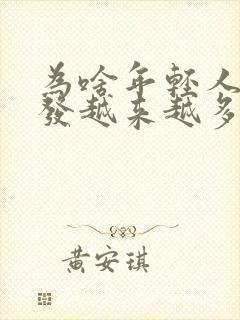 為啥年輕人
發越來越多
黃安琪